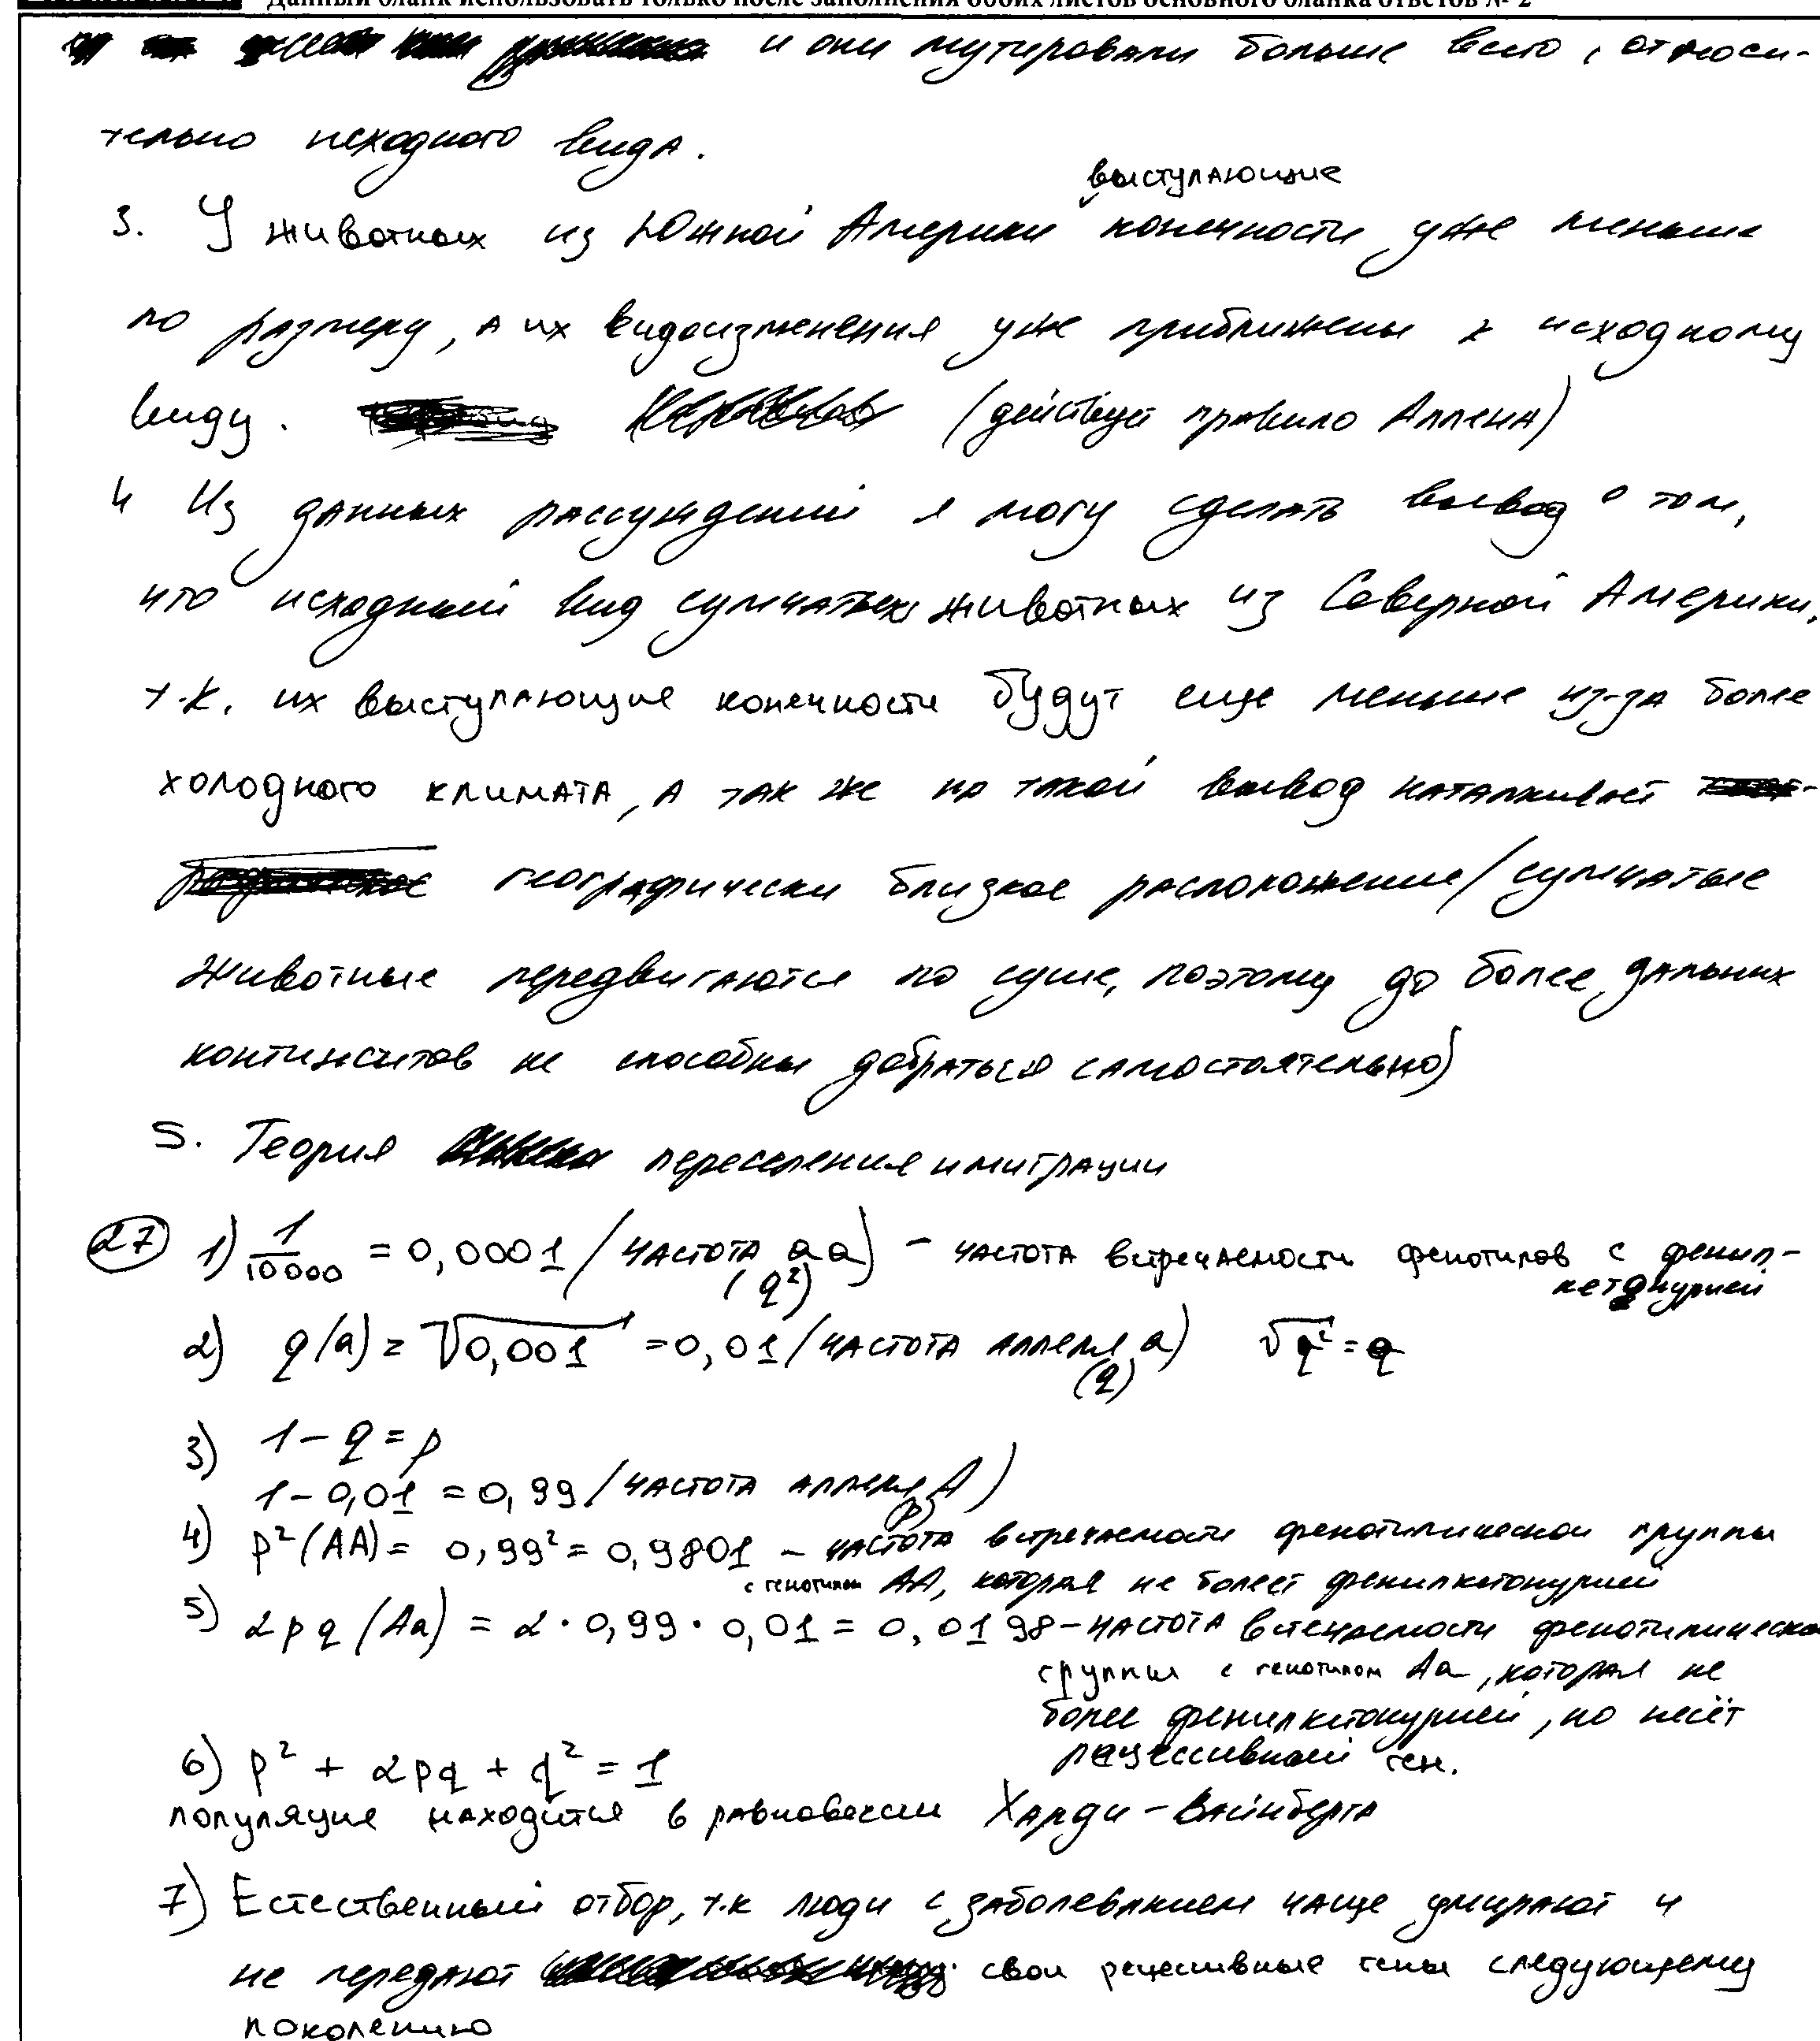 Данный бланк использовать только после заполнения обоих листов основного бланка ответов № 2
и они мутировали больше всего, относи-
тельно исходного вида.
выступающие
3. У животных из Южной Америки конечности уже меньше
по размеру, а их видоизменения уже приближены к исходному
виду. (действует правило Аллена)
4 Из данных рассуждений я могу сделать вывод о том,
что исходный вид сумчатых животных из Северной Америки,
т.к. их выступающие конечности будут еще меньше из-за более
холодного климата, а так же на такой вывод наталкивает
географически близкое расположение (сумчатые
животные передвигаются по суше, поэтому до более дальних
континентов не способны добраться самостоятельно)
5. Теория переселения и миграции
27 1) 1/10000 = 0,0001 (частота aa) - частота встречаемости фенотипов с фенил-
(q²) кетонурией
2) q(a) = √0,001 = 0,01 (частота аллеля a) √q² = q
(q)
3) 1 - q = p
1 - 0,01 = 0,99 (частота аллеля A)
(p)
4) p² (AA) = 0,99² = 0,9801 - частота встречаемости фенотипической группы
с генотипом AA, которая не болеет фенилкетонурией
5) 2pq (Aa) = 2 · 0,99 · 0,01 = 0,0198 - частота встечаемости фенотипическо
группы с генотипом Aa, которая не
более фенилкетонурией, но несёт
рецессивный ген.
6) p² + 2pq + q² = 1
популяция находится в равновесии Харди - Вайнберга
7) Естественный отбор, т.к люди с заболеванием чаще умирают и
не передают свои рецессивные гены следующему
поколению